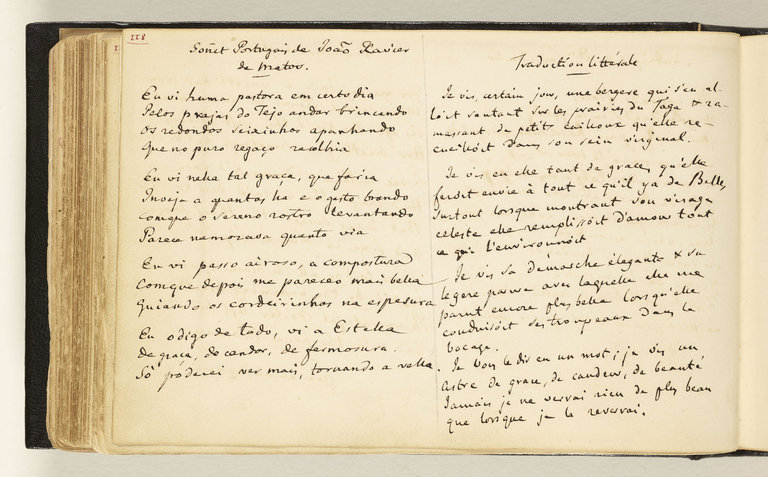 118
Soñet Portugais de João Xavier
de Matos.
Eu vi huma pastora em certo dia
Pelos prajas do Tejo andar brincando
os redondos seixinhos apanhando
Que no puro regaço recolhia
Eu vi neha tal graça, que faria
Inveja a quantos ha e o gesto brando
comque o sereno rostro levantando
Parece namorava quanto via
Eu vi o passo airoso, a compostura
Comque depois me pareceo mais bella
guiando os cordeirinhos na espesura
Eu o digo de todo, vi a Estella
de graça, de candor, de fermosura.
Só poderei ver mais, tornando a vella.
Traduction littérale
Je vis, certain jour, une bergere qui s'en al-
loit sautant sur les prairies du Tage & ra-
massant de petits cailloux qu'elle re-
cueilloit dans son sein virginal.
Je vis en elle tant de graces, qu'elle
feroit envie à tout ce qu'il y a de Belles,
surtout lorsque montrant son visage
celeste elle remplissoit d'amour tout
ce qui l'environnoit
Je vis sa démarche élegante & sa
legere par avec laquelle elle me
parut encore plus belle lorsqu'elle
conduisoit ses troupeaux dans le
bocage.
Je vous le dis en un mot; je vis un
astre de grace, de candeur, de beauté
Jamais je ne verrai rien de plus beau
que lorsque je la reverrai.